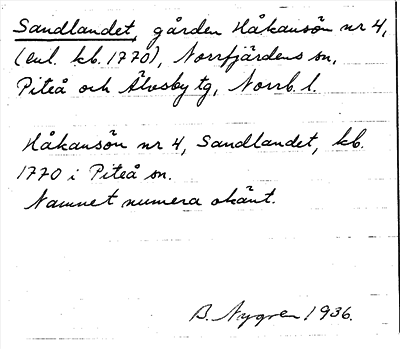 Sandlandet, gården Håkansön nr 4,
(enl. kb. 1770), Norrfjärdens sn,
Piteå och Älvsby tg, Norrb. l.
Håkansön nr 4, Sandlandet, kb.
1770 i Piteå sn.
Namnet numera okänt.
B. Nygren 1936.